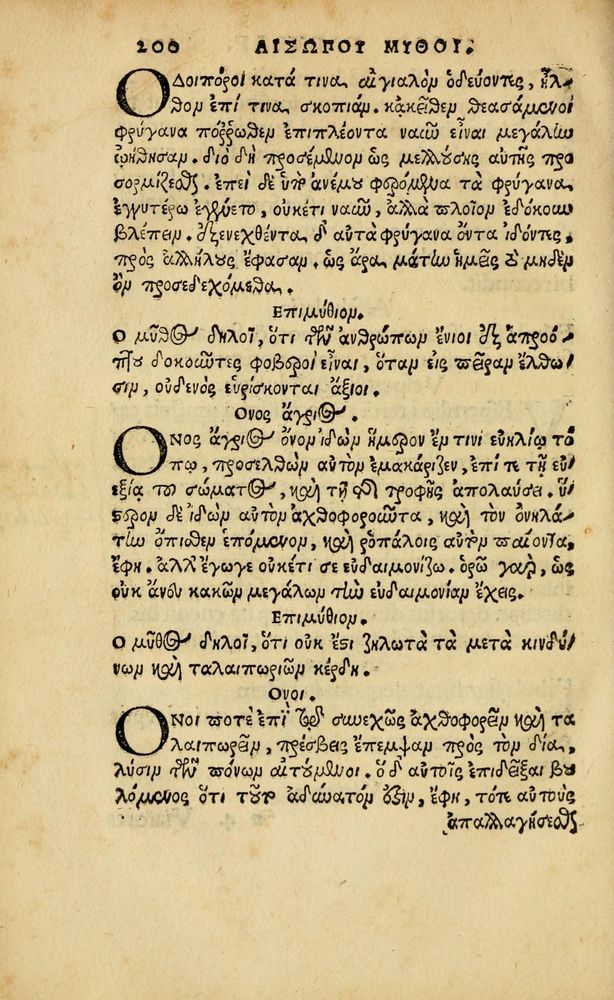 200 ΑΙΣΩΠΟΥ ΜΥΘΟΙ.
Οδοιπόροι κατά τινα αἰγιαλὸν ὁδεύοντες, ἦλ-
θον ἐπί τινα σκοπιάν. κἀκεῖθεν θεασάμενοι
φρύγανα πόῤῥωθεν ἐπιπλέοντα ναῦν εἶναι μεγάλην
ᾠήθησαν. διὸ δὴ προσέμενον ὡς μελλούσης αὐτῆς προ
σορμίζεσθαι. ἐπεὶ δὲ ὑπὸ ἀνέμου φερόμενα τὰ φρύγανα
ἐγγυτέρω ἐγένετο, οὐκέτι ναῦν, ἀλλὰ πλοῖον ἐδόκουν
βλέπειν. ἐξενεχθέντα δ' αὐτὰ φρύγανα ὄντα ἰδόντες,
πρὸς ἀλλήλους ἔφασαν. ὡς ἄρα μάτην ἡμεῖς τὸ μηδὲν
ὂν προσεδεχόμεθα.
Επιμύθιον.
Ο μῦθος δηλοῖ, ὅτι τῶν ἀνθρώπων ἔνιοι ἐξ ἀπροό-
πτου δοκοῦντες φοβεροὶ εἶναι, ὅταν εἰς πεῖραν ἔλθω-
σιν, οὐδενὸς εὑρίσκονται ἄξιοι.
Ονος ἄγριος.
Ονος ἄγριος ὄνον ἰδὼν ἥμερον ἔν τινι εὐηλίῳ τό
πῳ, προσελθὼν αὐτὸν ἐμακάριζεν, ἐπί τε τῇ εὐ
εξίᾳ τοῦ σώματος, καὶ τῇ τῆς τροφῆς ἀπολαύσει. ὕ-
στερον δὲ ἰδὼν αὐτὸν ἀχθοφοροῦντα, καὶ τὸν ὀνηλά-
την ὄπιθεν ἑπόμενον, καὶ ῥοπάλοις αὐτὸν παίοντα,
ἔφη. ἀλλ' ἔγωγε οὐκέτι σε εὐδαιμονίζω. ὁρῶ γὰρ, ὡς
οὐκ ἄνευ κακῶν μεγάλων τὴν εὐδαιμονίαν ἔχεις.
Επιμύθιον.
Ο μῦθος δηλοῖ, ὅτι οὐκ ἔστι ζηλωτὰ τὰ μετὰ κινδύ-
νων καὶ ταλαιπωριῶν κέρδη.
Ονοι.
Ονοι ποτὲ ἐπὶ τῷ συνεχῶς ἀχθοφορεῖν καὶ τα
λαιπωρεῖν, πρέσβεις ἔπεμψαν πρὸς τὸν δία,
λύσιν τῶν πόνων αἰτούμενοι. ὁ δ' αὐτοῖς ἐπιδεῖξαι βου
λόμενος ὅτι τοῦτ' ἀδύνατόν ἐστιν, ἔφη, τότε αὐτοὺς
ἀπαλλαγήσεσθαι